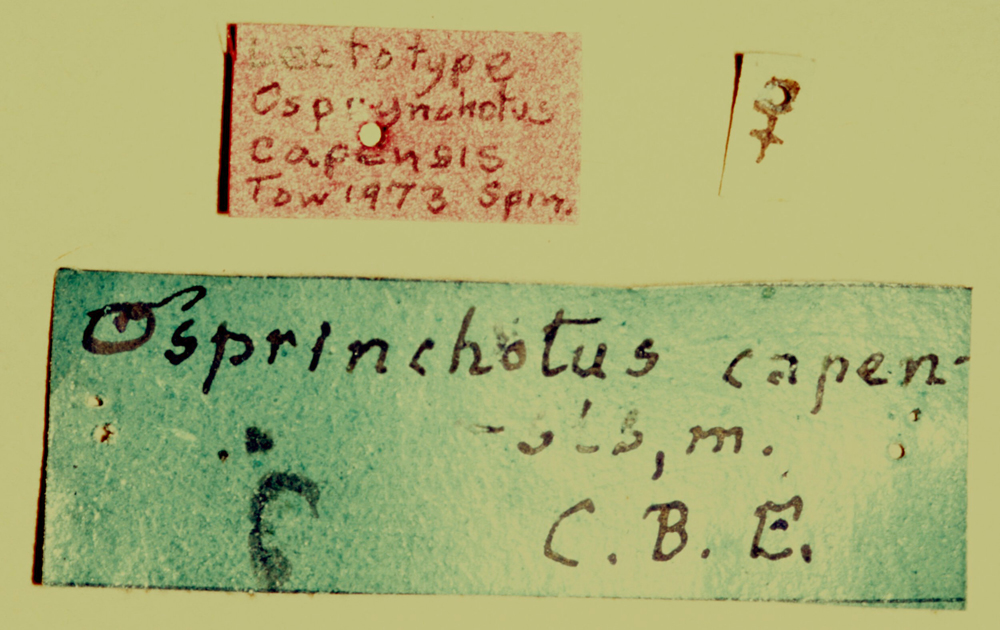 Lectotype
Osprynchotus
capensis
Tow 1973 Spin.
♀
Osprinchotus capen-
-sis, m.
C. B. E.